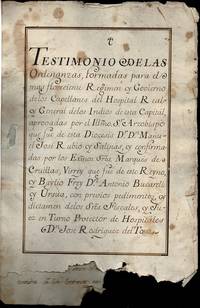 TESTIMONIO DE LAS
Ordinanzas, formadas para el
mas floreciente Regimen, y Govierno
de los Capellanes del Hospital Real
y General de los Indios de esta Capital,
aprovadas por el Illmô. Sr. Arzobispo
que fue de esta Diocesis Dr. Dn. Manu-
el José Rubio y Salinas, y confirma-
das por los Exmôs. Srês. Marqués de
Cruillas, Virrey que fue de este Reyno,
y Baylio Frey Dn. Antonio Bucareli
y Ursúa, con previos pedimentos, y
dictamen de los Srês. Fiscales, y Ju-
ez en Turno Protector de Hospitales
Dn. José Rodríguez del Toro